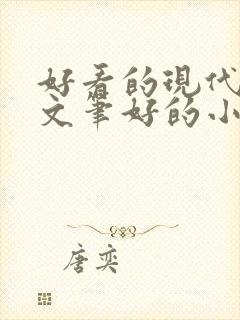 好看的现代
文笔好的小
唐奕